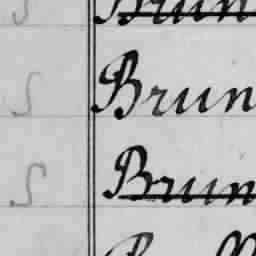 Brun
S Brun
S Brun